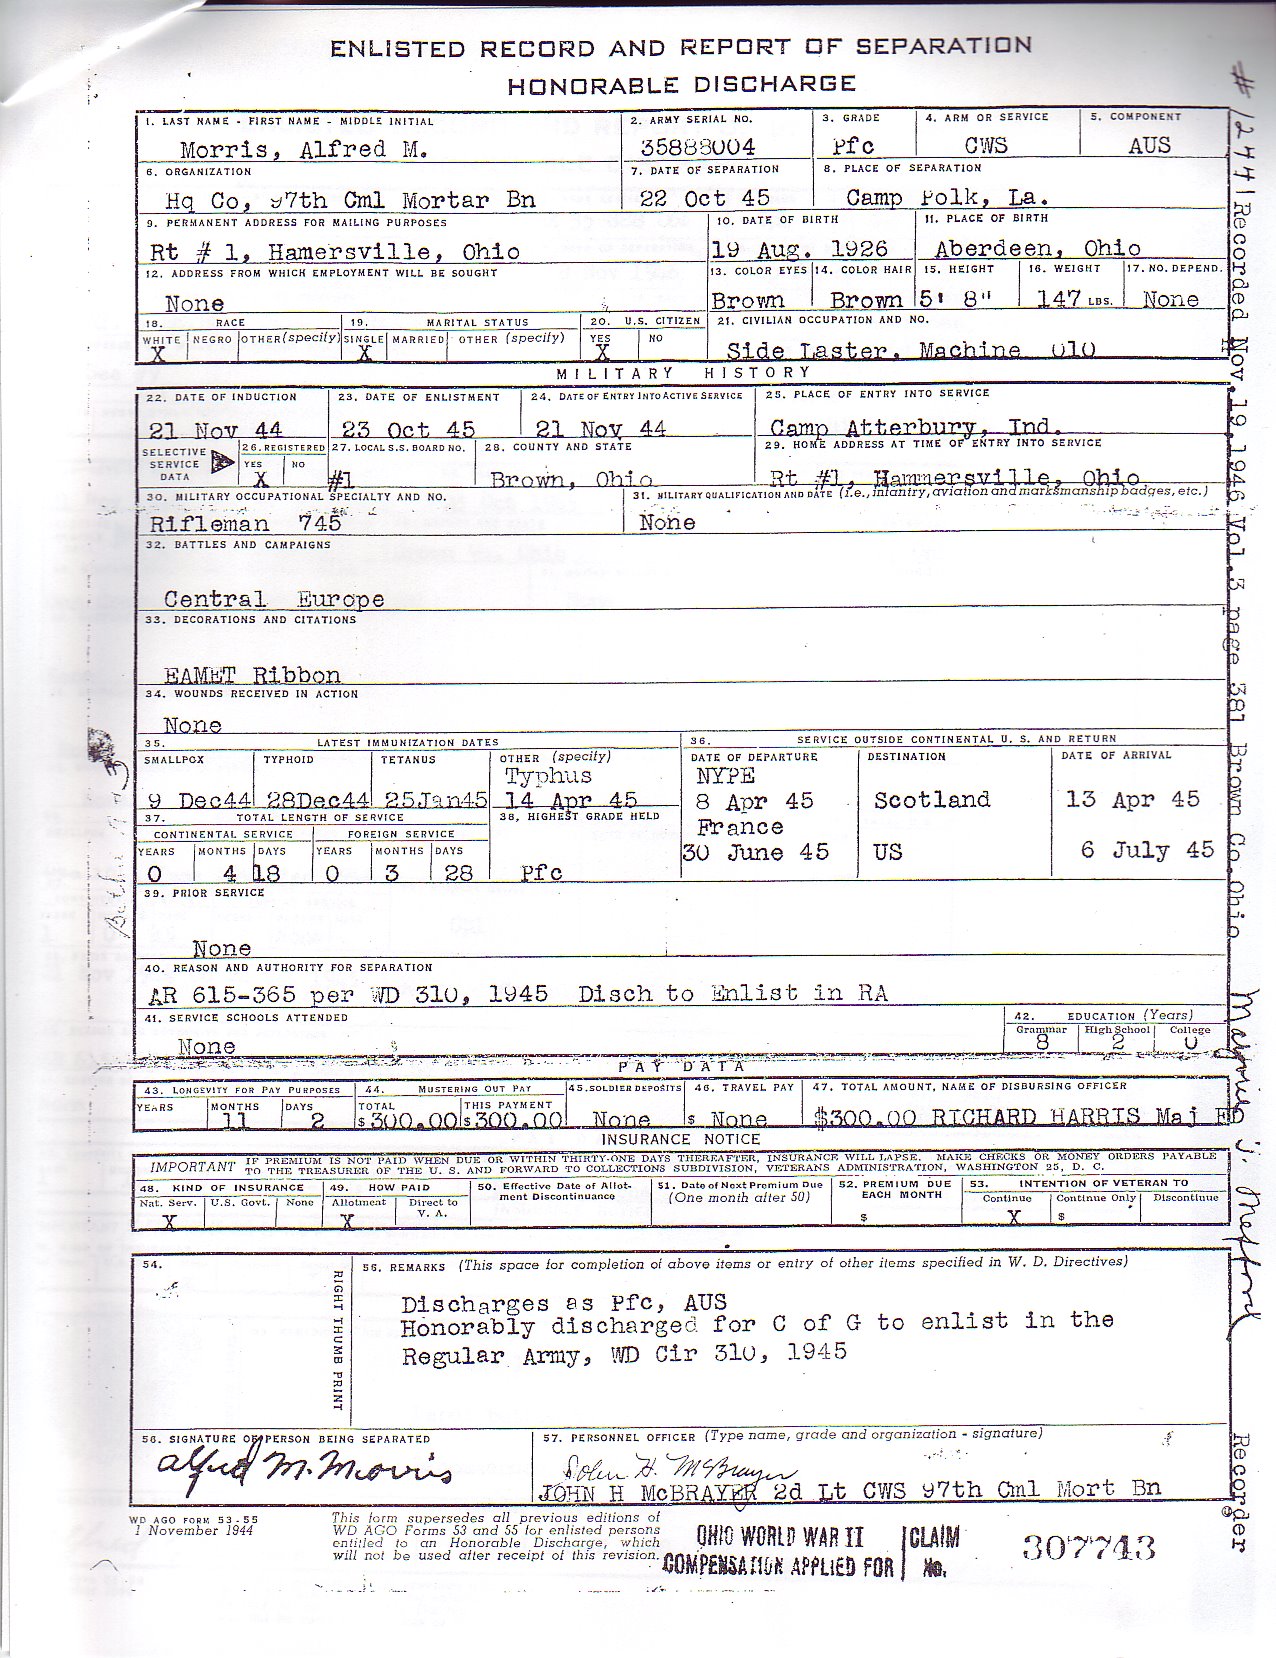 ENLISTED RECORD AND REPORT OF SEPARATION
HONORABLE DISCHARGE
1. LAST NAME - FIRST NAME - MIDDLE INITIAL
Morris, Alfred M.
2. ARMY SERIAL NO.
35888004
3. GRADE
Pfc
4. ARM OR SERVICE
CWS
5. COMPONENT
AUS
6. ORGANIZATION
Hq Co, 97th Cml Mortar Bn
7. DATE OF SEPARATION
22 Oct 45
8. PLACE OF SEPARATION
Camp Polk, La.
9. PERMANENT ADDRESS FOR MAILING PURPOSES
Rt # 1, Hamersville, Ohio
10. DATE OF BIRTH
19 Aug. 1926
11. PLACE OF BIRTH
Aberdeen, Ohio
12. ADDRESS FROM WHICH EMPLOYMENT WILL BE SOUGHT
None
13. COLOR EYES
Brown
14. COLOR HAIR
Brown
15. HEIGHT
5' 8"
16. WEIGHT
147 LBS.
17. NO. DEPEND.
None
18. RACE
WHITE NEGRO OTHER (specify)
X
19. MARITAL STATUS
SINGLE MARRIED OTHER (specify)
X
20. U.S. CITIZEN
YES NO
X
21. CIVILIAN OCCUPATION AND NO.
Side Laster, Machine 010
MILITARY HISTORY
22. DATE OF INDUCTION
21 Nov 44
23. DATE OF ENLISTMENT
23 Oct 45
24. DATE OF ENTRY INTO ACTIVE SERVICE
21 Nov 44
25. PLACE OF ENTRY INTO SERVICE
Camp Atterbury, Ind.
SELECTIVE SERVICE DATA
26. REGISTERED
YES NO
X
27. LOCAL S.S. BOARD NO.
#1
28. COUNTY AND STATE
Brown, Ohio
29. HOME ADDRESS AT TIME OF ENTRY INTO SERVICE
Rt #1, Hammersville, Ohio
30. MILITARY OCCUPATIONAL SPECIALTY AND NO.
Rifleman 745
31. MILITARY QUALIFICATION AND DATE (i.e., infantry, aviation and marksmanship badges, etc.)
None
32. BATTLES AND CAMPAIGNS
Central Europe
33. DECORATIONS AND CITATIONS
EAMET Ribbon
34. WOUNDS RECEIVED IN ACTION
None
35. LATEST IMMUNIZATION DATES
SMALLPOX TYPHOID TETANUS OTHER (specify)
Typhus
9 Dec44 28Dec44 25Jan45 14 Apr 45
36. SERVICE OUTSIDE CONTINENTAL U. S. AND RETURN
DATE OF DEPARTURE DESTINATION DATE OF ARRIVAL
NYPE
8 Apr 45 Scotland 13 Apr 45
France
30 June 45 US 6 July 45
37. TOTAL LENGTH OF SERVICE
CONTINENTAL SERVICE FOREIGN SERVICE
YEARS MONTHS DAYS YEARS MONTHS DAYS
0 4 18 0 3 28
38. HIGHEST GRADE HELD
Pfc
39. PRIOR SERVICE
None
40. REASON AND AUTHORITY FOR SEPARATION
AR 615-365 per WD 310, 1945 Disch to Enlist in RA
41. SERVICE SCHOOLS ATTENDED
None
42. EDUCATION (Years)
Grammar High School College
8 2 0
PAY DATA
43. LONGEVITY FOR PAY PURPOSES
YEARS MONTHS DAYS
11 2
44. MUSTERING OUT PAY
TOTAL THIS PAYMENT
$300.00 $300.00
45. SOLDIER DEPOSITS
None
46. TRAVEL PAY
$ None
47. TOTAL AMOUNT, NAME OF DISBURSING OFFICER
$300.00 RICHARD HARRIS Maj FD
INSURANCE NOTICE
IMPORTANT IF PREMIUM IS NOT PAID WHEN DUE OR WITHIN THIRTY-ONE DAYS THEREAFTER, INSURANCE WILL LAPSE. MAKE CHECKS OR MONEY ORDERS PAYABLE
TO THE TREASURER OF THE U. S. AND FORWARD TO COLLECTIONS SUBDIVISION, VETERANS ADMINISTRATION, WASHINGTON 25, D. C.
48. KIND OF INSURANCE
Nat. Serv. U.S. Govt. None
X
49. HOW PAID
Allotment Direct to V. A.
X
50. Effective Date of Allotment Discontinuance
51. Date of Next Premium Due
(One month after 50)
52. PREMIUM DUE
EACH MONTH
$
53. INTENTION OF VETERAN TO
Continue Continue Only Discontinue
X $
54.
RIGHT THUMB PRINT
55. REMARKS (This space for completion of above items or entry of other items specified in W. D. Directives)
Discharges as Pfc, AUS
Honorably discharged for C of G to enlist in the
Regular Army, WD Cir 310, 1945
56. SIGNATURE OF PERSON BEING SEPARATED
Alfred M. Morris
57. PERSONNEL OFFICER (Type name, grade and organization - signature)
John H. McBrayer
JOHN H McBRAYER 2d Lt CWS 97th Cml Mort Bn
WD AGO FORM 53-55
1 November 1944
This form supersedes all previous editions of
WD AGO Forms 53 and 55 for enlisted persons
entitled to an Honorable Discharge, which
will not be used after receipt of this revision.
OHIO WORLD WAR II
COMPENSATION APPLIED FOR
CLAIM
No.
307743
# 12441 Recorded Nov.19,1946 Vol.3 page 381 Brown Co.Ohio
J.
Recorder